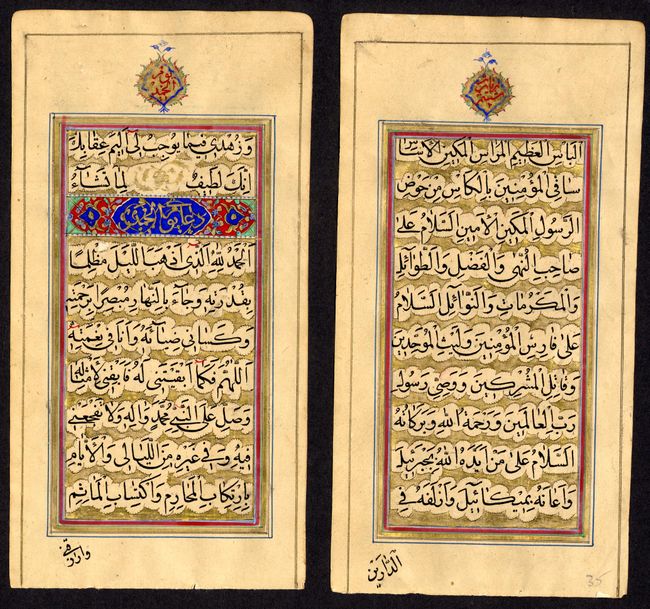 الباس العظيم المراس المكين الاساس
ساقي المؤمنين بالكاس من حوض
الرسول المكين الامين السلام على
صاحب النهى والفضل والطوائل
والمكرمات والنوائل السلام
على فارس المؤمنين وليث الموحدين
وقاتل المشركين ووصي رسول
رب العالمين ورحمة الله وبركاته
السلام على من ايده الله بجبرئيل
واعانه بميكائيل وازلفه في
الدارين
35
وزهدني فيما يوجب لي اليم عقابك
انك لطيف لما تشاء
دعاء يوم الخميس
الحمد لله الذي اذهب الليل مظلما
بقدرته وجاء بالنهار مبصرا برحمته
وكساني ضيائه واتاني نعمته
اللهم فكما ابقيتني له فابقني لامثاله
وصل على النبي محمد واله ولا تفجعني
فيه وفي غيره من الليالي والايام
بارتكاب المحارم واكتساب المآثم
وارزقني